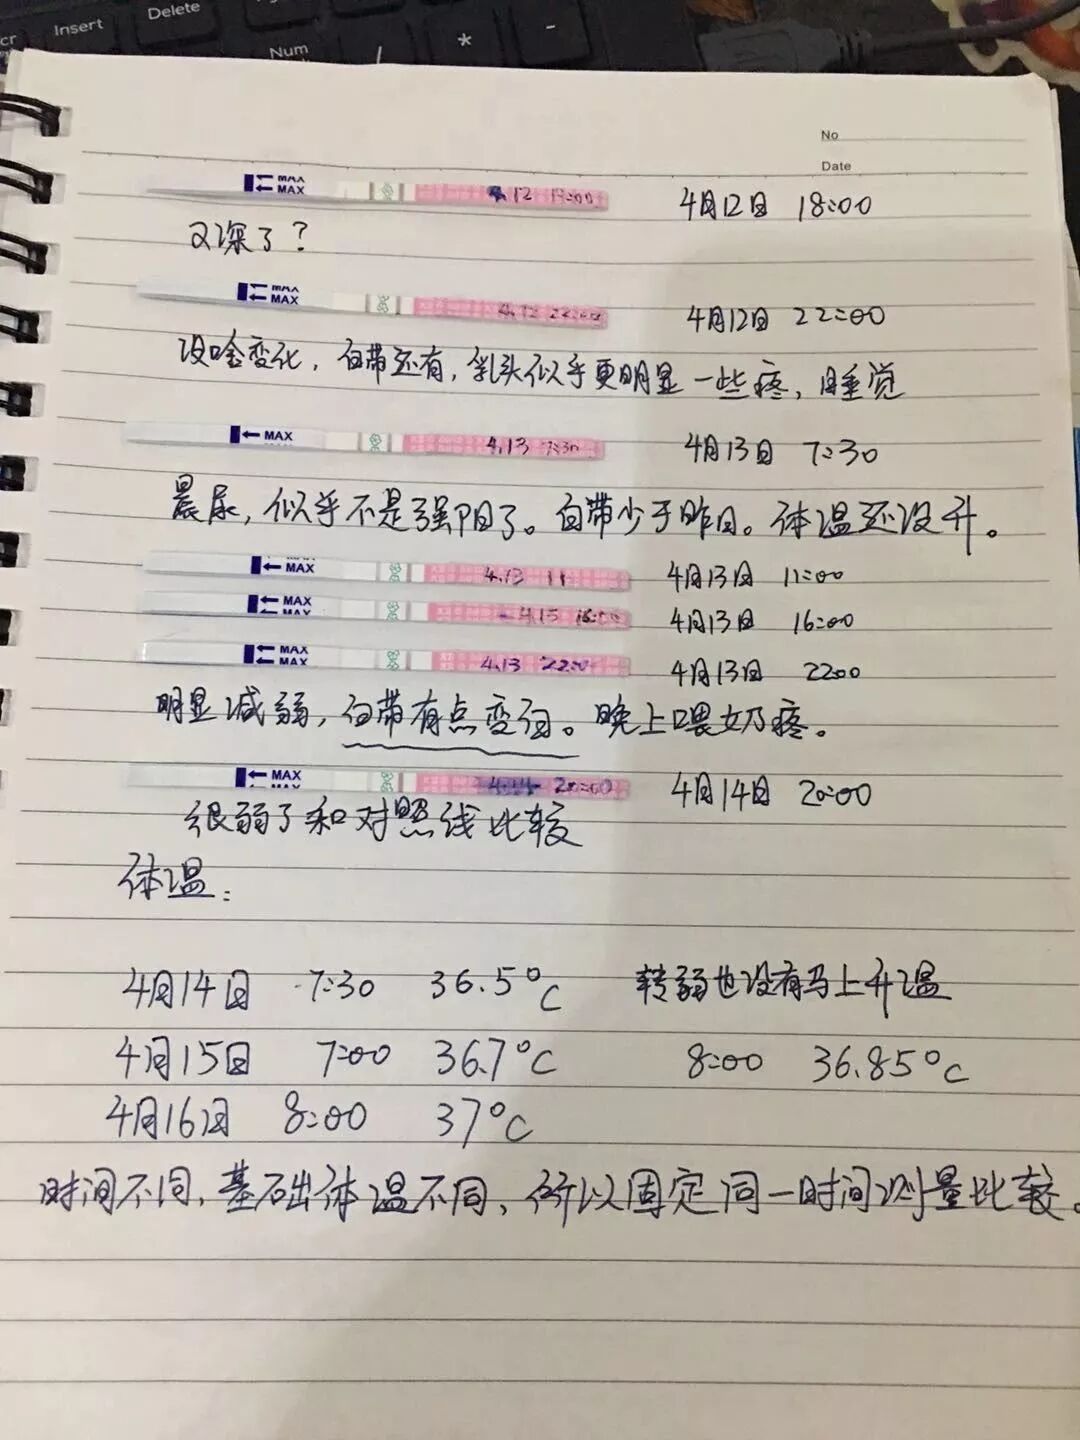 Insert
Delete
Num
/
*
-
No
Date
MAX
MAX
12 18:00
4月12日 18:00
又深了?
MAX
MAX
4.12 22:00
4月12日 22:00
没啥变化,白带还有,乳头似乎更明显一些疼,睡觉
MAX
4.13 7:30
4月13日 7:30
晨尿,似乎不是强阳了。白带少于昨日。体温还没升。
MAX
4.13 11
4月13日 11:00
MAX
MAX
4.13 16:00
4月13日 16:00
MAX
MAX
4.13 22:00
4月13日 22:00
明显减弱,白带有点变白。晚上喂奶疼。
MAX
4.14 20:00
4月14日 20:00
很弱了和对照线比较
体温:
4月14日 7:30 36.5°C 转弱也没有马上升温
4月15日 7:00 36.7°C 8:00 36.85°C
4月16日 8:00 37°C
时间不同,基础体温不同,所以固定同一时间测量比较。